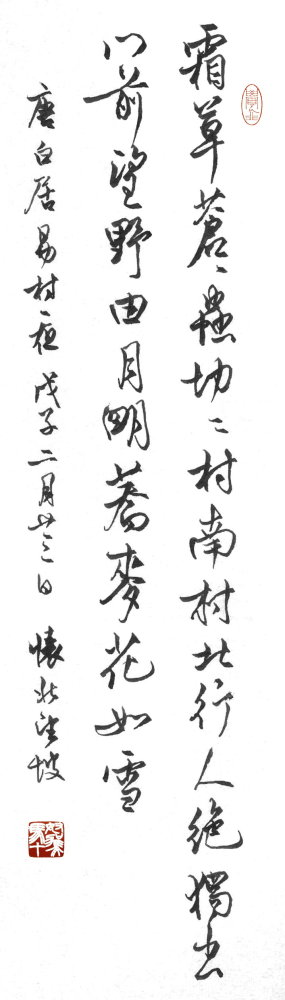 霜草蒼〻蟲切〻村南村北行人絕獨出
門前望野由月明蕎麥花如雪
唐白居易村夜 戊子二月廿三日 懷北望坡